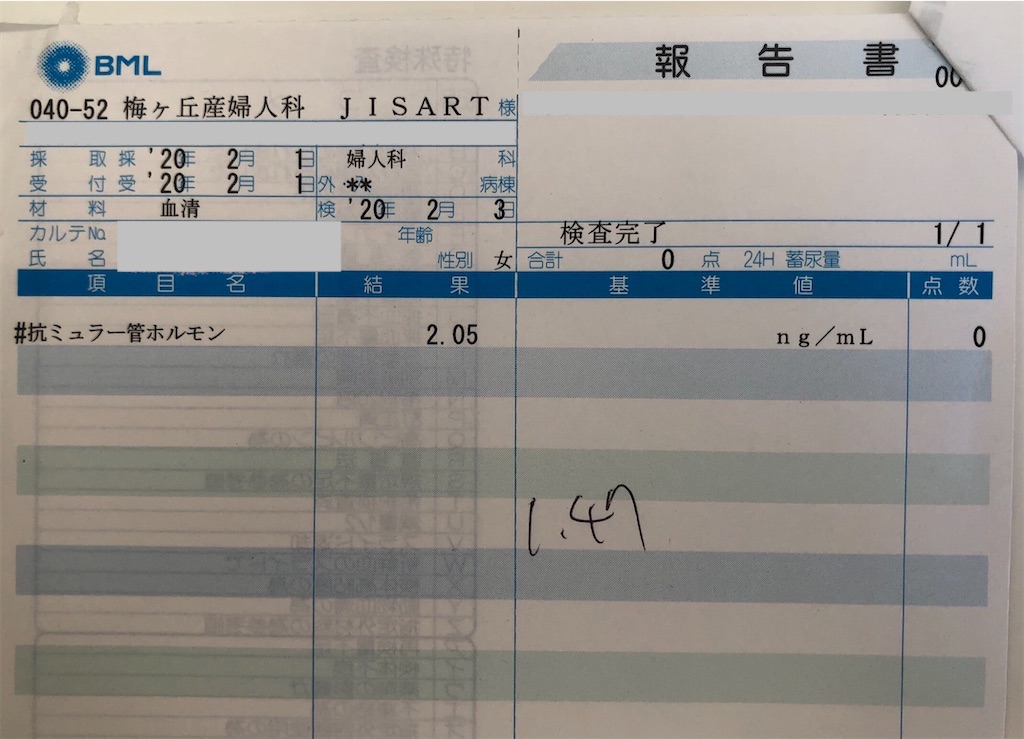 BML
報告書
00
040-52 梅ヶ丘産婦人科 JISART様
採取 採 '20年 2月 1日 婦人科 科
受付 受 '20年 2月 1日 外 ** 病棟
材料 血清 検 '20年 2月 3日
カルテNo. 年齢 検査完了 1/ 1
氏名 性別 女 合計 0 点 24H 蓄尿量 mL
項目名 結果 基準値 点数
#抗ミュラー管ホルモン 2.05 ng/mL 0
1.47